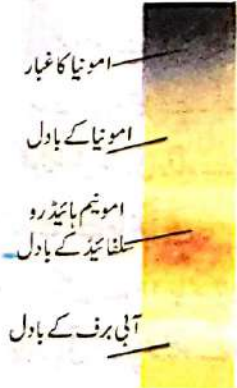 امونیا کا غبار
امونیا کے بادل
امونیم ہائیڈرو
سلفائیڈ کے بادل
آبی برف کے بادل